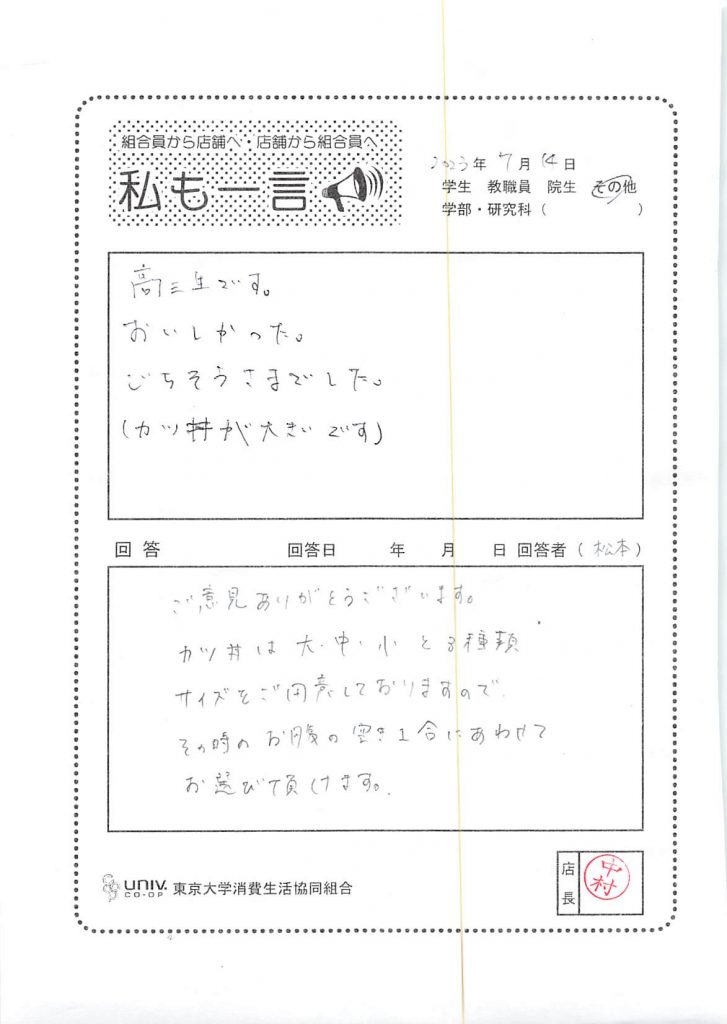 組合員から店舗へ・店舗から組合員へ
私も一言
2023年 7月 14日
学生 教職員 院生 その他
学部・研究科( )
高三生です。
おいしかった。
ごちそうさまでした。
(カツ丼が大きいです)
回答 回答日 年 月 日 回答者(松本)
ご意見ありがとうございます。
カツ丼は大・中・小と3種類
サイズをご用意しておりますので、
その時のお腹の空き具合にあわせて
お選び頂けます。
UNIV.
CO-OP
東京大学消費生活協同組合
店長
中村